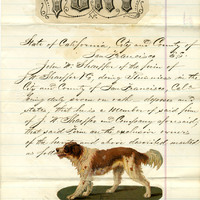 TONY
State of California, City and County of
San Francisco
John W. Shaeffer of the firm of
J. W. Shaeffer & Co, doing business in the
City and County of San Francisco, Cal.
being duly sworn on oath deposes and
states, that he is a member of said firm
of J. W. Shaeffer and Company aforesaid,
that said firm are the exclusive owners
of the
and above described
as